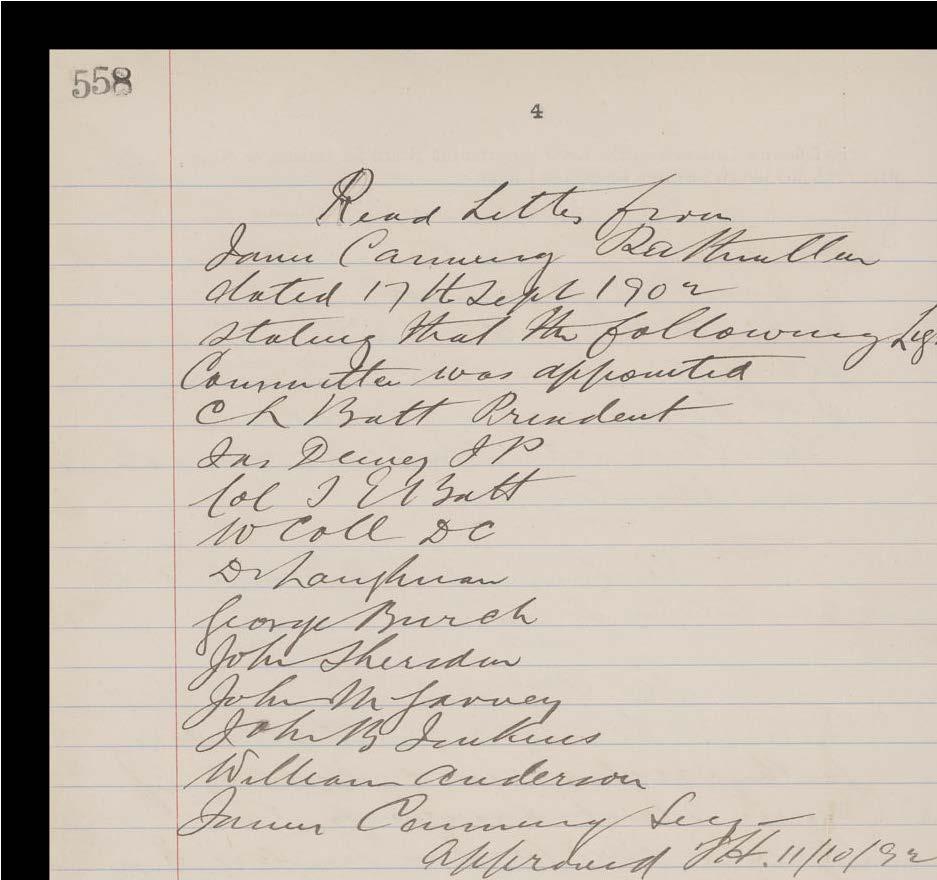 558
4
Read Letter from
James Canning Rathmullan
dated 17th Sept 1902
stating that the following
Committee was appointed
Ch Batt President
Jas Deeney JP
Col T E Batt
W Coll DC
Dr Loughnan
George Burch
John Sheridan
John McGarvey
John B Jenkins
William Anderson
James Canning Secy
approved 11/10/92